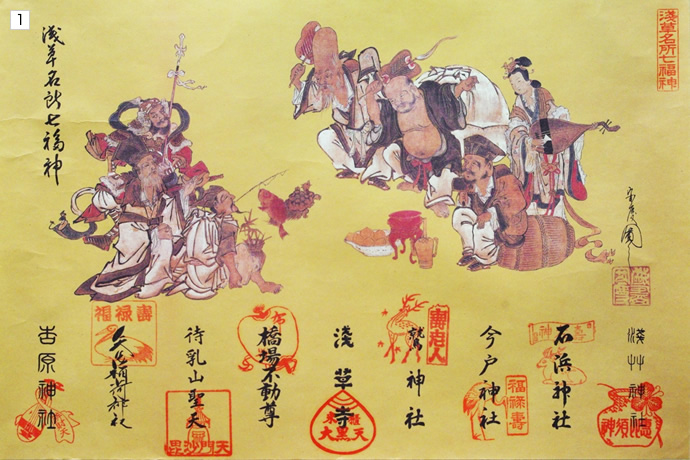 1
淺草名所七福神
淺草名所七福神
淺草神社
惠比須神
石浜神社
壽老神
今戸神社
福禄寿
鷲神社
壽老人
淺草寺
大黒天
橋場不動尊
布
待乳山聖天
毘沙門天
矢先稲荷神社
福禄壽
吉原神社